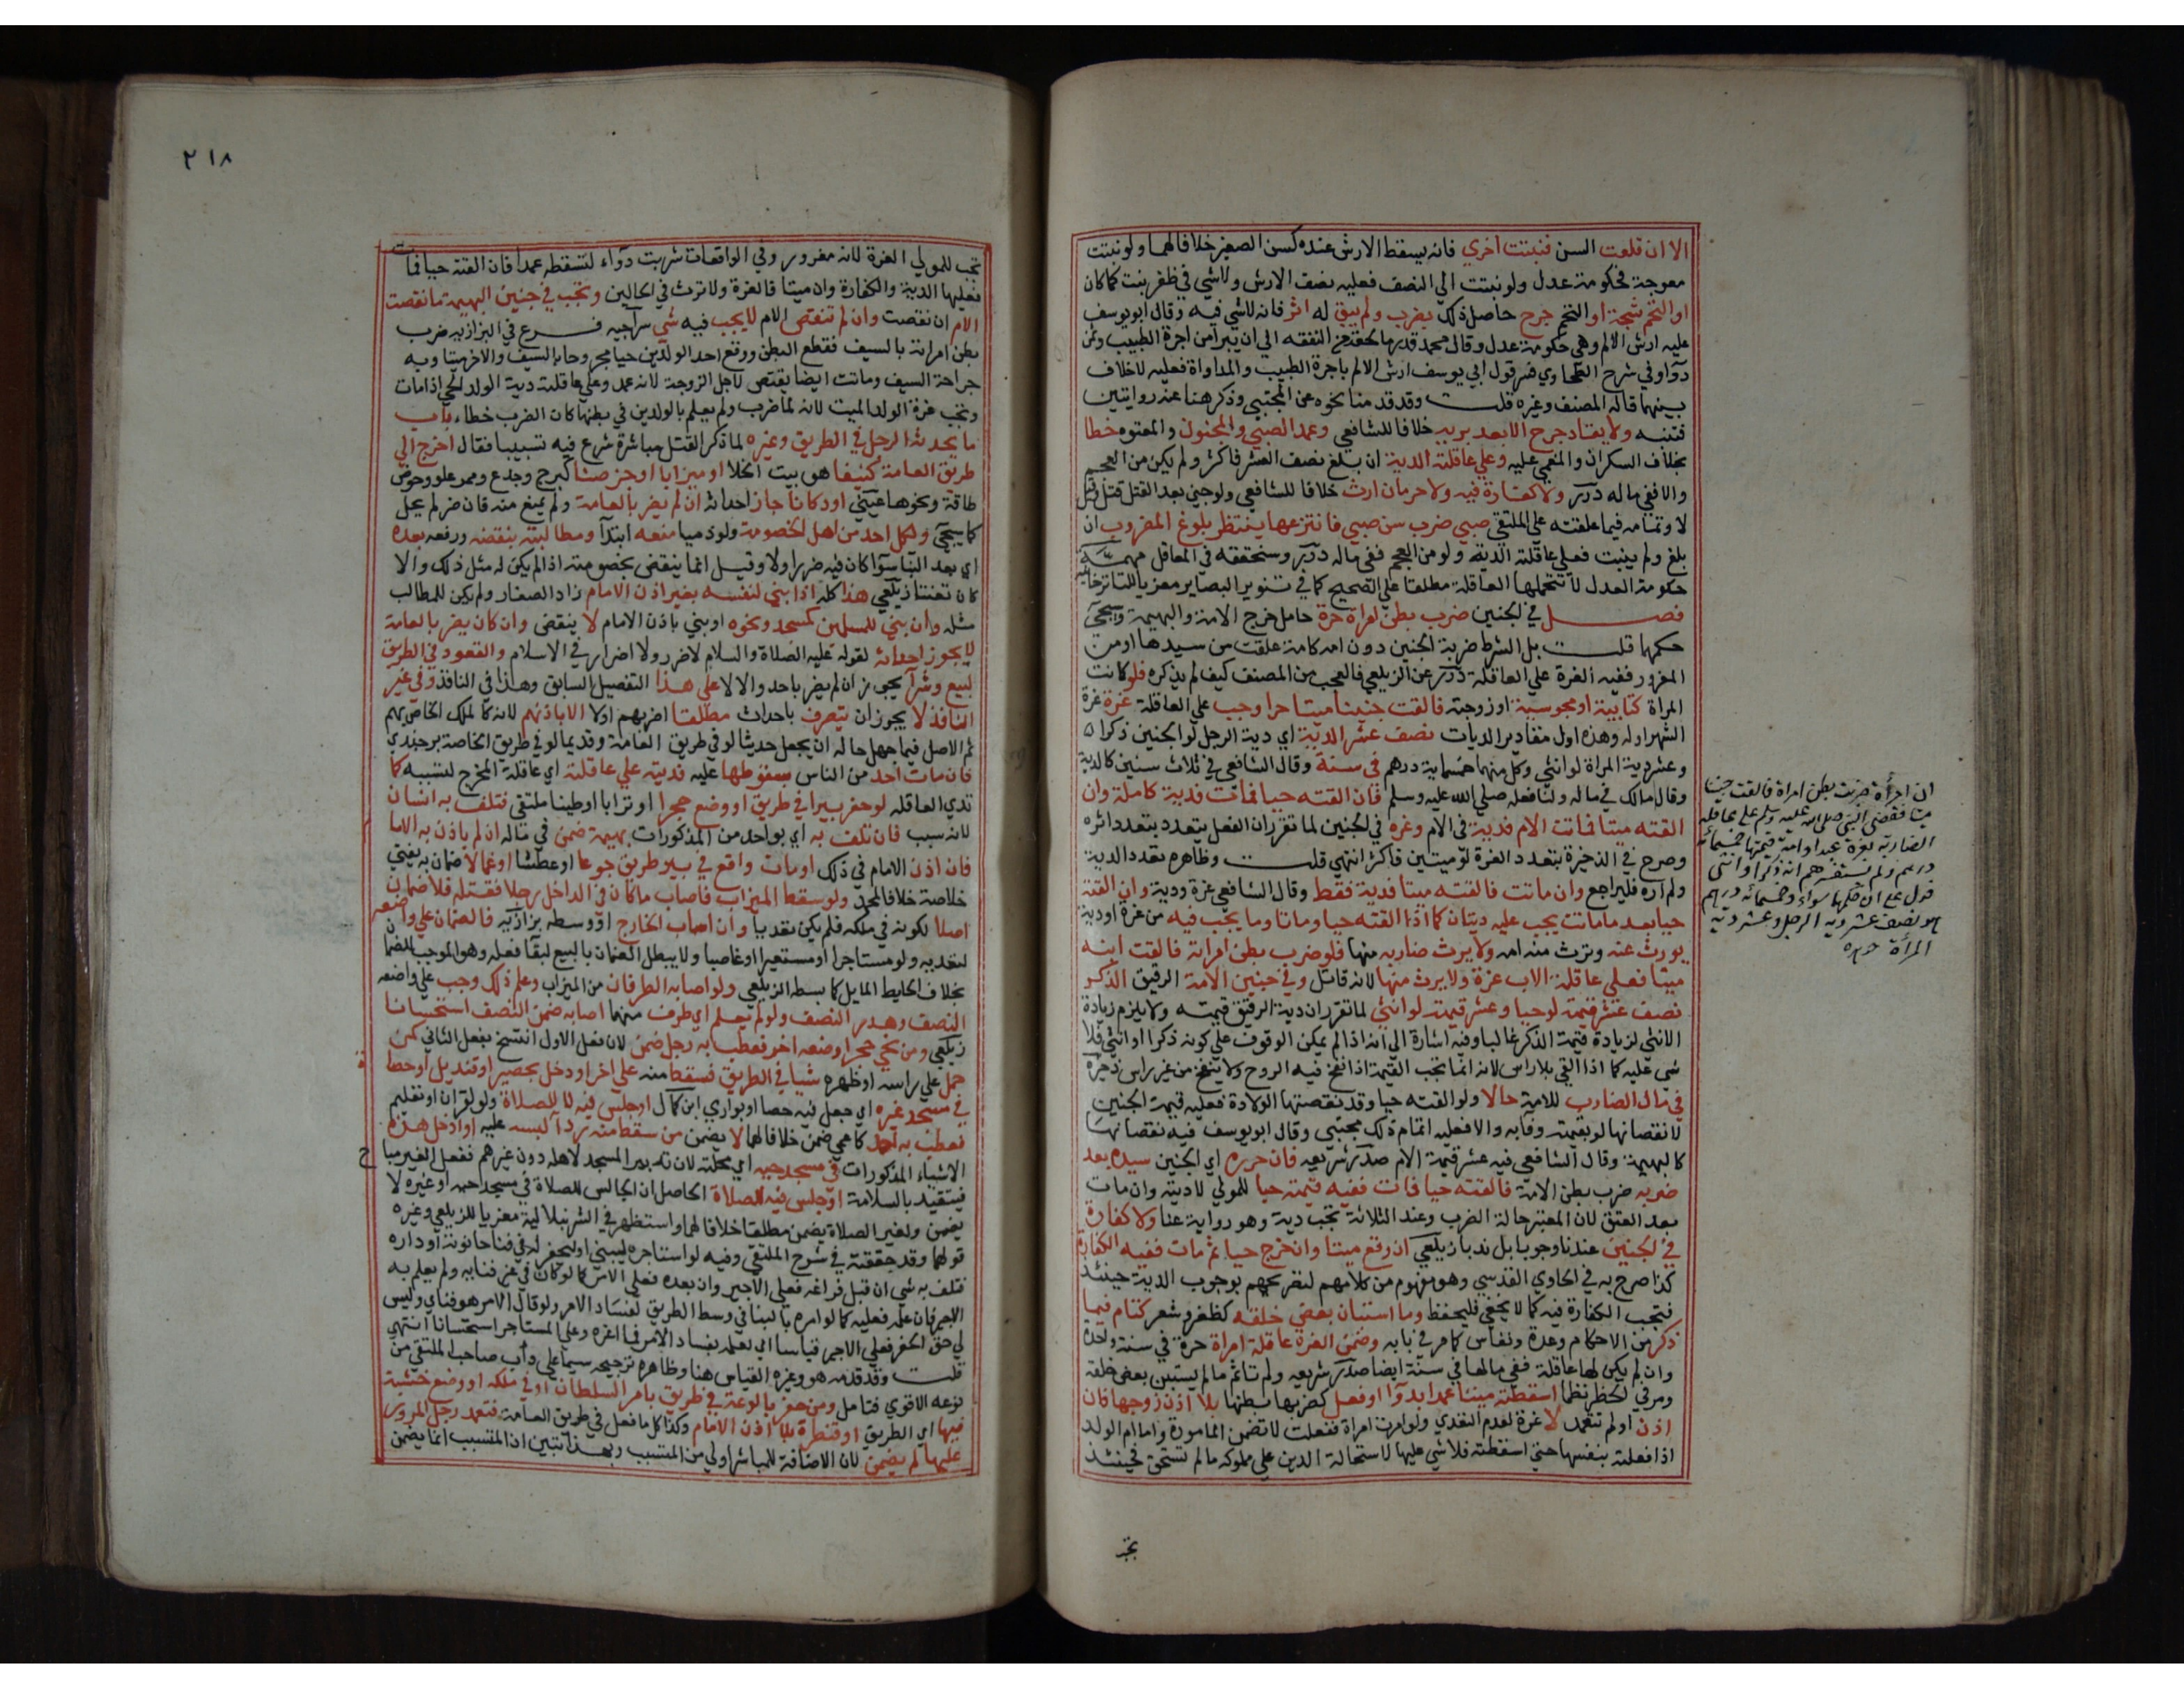 الا ان قلعت السن فنبتت اخري فانه يسقط الارش عنده كسن الصغير خلافا لهما ولو نبتت
معوجة فحكومة عدل ولو نبتت الي النصف فعليه نصف الارش ولا شي في ظفر نبت كما كان
او التحم شجة او التحم جرح حاصل ذلك بضرب ولم يبق له اثر فانه لا شي فيه وقال ابو يوسف
عليه ارش الالم وهي حكومة عدل وقال محمد قدر ما لحقه من النفقه الي ان يبرا من اجرة الطبيب وثمن
دوآ وفي شرح الطحاوي فسر قول ابي يوسف ارش الالم باجرة الطبيب والمداواة فعليه لا خلاف
بينهما قاله المصنف وغيره قلت وقد قدمنا نحوه عن المجتبي وذكر هنا عنه روايتين
فتنبه ولا يقاد جرح الا بعد بربه خلافا للشافعي وعمد الصبي والمجنون والمعتوه خطا
بخلاف السكران والمغمي عليه وعلي عاقلته الدية ان بلغ نصف العشر فاكثر ولم يكن من العجم
والا ففي ماله درر ولا كفارة فيه ولا حرمان ارث خلافا للشافعي ولو جن بعد القتل قتل وقيل
لا وتمامه فيما علقته علي الملتقي صبي ضرب سن صبي فانتزعها ينتظر بلوغ المضروب ان
بلغ ولم ينبت فعلي عاقلته الدية ولو من العجم ففي ماله درر وسنحققه في المعاقل مهمة
حكومة العدل لا تتحملها العاقلة مطلقا علي الصحيح كما في تنوير البصاير معزيا للتاترخانيه
فصل في الجنين ضرب بطن امراة حرة حامل خرج الامة والبهيمة وسيجي
حكمها قلت بل الشرط حرية الجنين دون امه كامة علقت من سيدها او من
المغرور ففيه الغرة علي العاقلة درر عن الزيلعي فالعجب من المصنف كيف لم يذكره فلو كانت
المراة كتابية او مجوسية او زوجته فالقت جنينا ميتا حرا وجب علي العاقلة غرة غرة
الشهر اوله وهذه اول مقادير الديات نصف عشر الدية اي دية الرجل لو الجنين ذكرا
وعشر دية المراة لو انثي وكل منهما خمسماية درهم في سنة وقال الشافعي في ثلاث سنين كالدية
وقال مالك في ماله ولنا فعله صلي الله عليه وسلم فان القته حيا فمات فدية كاملة وان
القته ميتا فماتت الام فدية في الام وغرة في الجنين لما تقرر ان الفعل يتعدد بتعدد اثره
وصرح في الذخيرة بتعدد الغرة لو ميتين فاكثر انتهي قلت وظاهره تعدد الدية
ولم اره فليراجع وان ماتت فالقته ميتا فدية فقط وقال الشافعي غرة ودية وان القته
حيا بعد ما ماتت يجب عليه ديتان كما اذا القته حيا وماتا وما يجب فيه من غرة او دية
يورث عنه وترث منه امه ولا يرث ضاربه منها فلو ضرب بطن امراته فالقت ابنه
ميتا فعلي عاقلة الاب غرة ولا يرث منها لانه قاتل وفي جنين الامة الرقيق الذكر
نصف عشر قيمته لو حيا وعشر قيمته لو انثي لما تقرر ان دية الرقيق قيمته ولا يلزم زيادة
الانثي لزيادة قيمة الذكر غالبا وفيه اشارة الي انه اذا لم يمكن الوقوف علي كونه ذكرا او انثي فلا
شي عليه كما اذا القي بلا راس لانه انما تجب القيمة اذا نفخ فيه الروح ولا ينفخ من غير راس ذخيرة
في مال الضارب للامة حالا ولو القته حيا وقد نقصتها الولادة فعليه قيمة الجنين
لا نقصانها لو بقيمته وفآ به والا فعليه اتمام ذلك مجتبي وقال ابو يوسف فيه نقصانها
كالبهيمة وقال الشافعي فيه عشر قيمة الام صدر شريعه فان حرره اي الجنين سيده بعد
ضربه ضرب بطن الامة فالقته حيا فمات ففيه قيمته حيا للمولي لا ديته وان مات
بعد العتق لان المعتبر حالة الضرب وعند الثلاثة تجب دية وهو رواية عنا ولا كفارة
في الجنين عندنا وجوبا بل ندبا زيلعي ان وقع ميتا وان خرج حيا ثم مات ففيه الكفارة
كذا صرح به في الحاوي القدسي وهو مفهوم من كلامهم لتصريحهم بوجوب الدية حينئذ
فتجب الكفارة فيه كما لا يخفي فليحفظ وما استبان بعض خلقه كظفر وشعر كتام فيما
ذكر من الاحكام وعدة ونفاس كما مر في بابه وضمن الغرة عاقلة امراة حرة في سنة واحدة
وان لم يكن لها عاقلة ففي مالها في سنة ايضا صدر شريعه ولم تاثم ما لم يستبن بعض خلقه
ومر في الحظر نظما اسقطته ميتا عمدا بدوآ او فعل كضربها بطنها بلا اذن زوجها فان
اذن او لم تتعمد لا غرة لعدم التعدي ولو امرت امراة ففعلت لا تضمن المامورة واما ام الولد
اذا فعلته بنفسها حتي اسقطته فلا شي عليها لاستحالة الدين علي مملوكه ما لم تستحق فحينئذ
تجب
ان امرأة ضربت بطن امراة فالقت جنينا
ميتا فقضى النبي صلى الله عليه وسلم على عاقلة
الضاربة بغرة عبد او امة قيمتها خمسمائة
درهم ولم يستفسرهم انه ذكر او انثى
فدل على ان حكمهما سواء وخمسمائة درهم
هو نصف عشر دية الرجل وعشر دية
المرأة
٢١٨
تجب للمولي الغرة لانه مغرور وفي الواقعات شربت دوآء لتسقطه عمدا فان القته حيا فمات
فعليها الدية والكفارة وان ميتا فالغرة ولا ترث في الحالين وتجب في جنين البهيمة ما نقصت
الام ان نقصت وان لم تنقص الام لا يجب فيه شي سراجيه فرع في البزازيه ضرب
بطن امراته بالسيف فقطع البطن ووقع احد الولدين حيا مجروحا بالسيف والاخر ميتا وبه
جراحة السيف وماتت ايضا يقتص لاجل الزوجة لانه عمد وعلي عاقلته دية الولد الحي اذا مات
وتجب غرة الولد الميت لانه لما ضرب ولم يعلم بالولدين في بطنها كان الضرب خطاء باب
ما يحدثه الرجل في الطريق وغيره لما ذكر القتل مباشرة شرع فيه تسبيبا فقال اخرج الي
طريق العامة كنيفا هو بيت الخلا او ميزابا او جرصنا كبرج وجذع وممر علو وحوض
طاقة ونحوها عيني او دكانا جاز احداثه ان لم يضر بالعامة ولم يمنع منه فان ضر لم يحل
كما سيجي ولكل احد من اهل الخصومة ولو ذميا منعه ابتدآ ومطالبته بنقضه ورفعه بعده
اي بعد البنا سوآ كان فيه ضرر اولا وقيل انما ينقض بخصومته اذا لم يكن له مثل ذلك والا
كان تعنتا زيلعي هذا كله اذا بني لنفسه بغير اذن الامام زاد الصفار ولم يكن للمطالب
مثله وان بني للمسلمين كمسجد ونحوه او بني باذن الامام لا ينقض وان كان يضر بالعامة
لا يجوز احداثه لقوله عليه الصلاة والسلام لا ضرر ولا اضرار في الاسلام والقعود في الطريق
لبيع وشرآ يجوز ان لم يضر باحد والا لا علي هذا التفصيل السابق وهذا في النافذ وفي غير
النافذ لا يجوز ان يتصرف باحداث مطلقا اضر بهم اولا الا باذنهم لانه كالملك الخاص بهم
ثم الاصل فيما جهل حاله ان يجعل حديثا لو في طريق العامة وقديما لو في طريق الخاصة برجندي
فان مات احد من الناس بسقوطها عليه فديته علي عاقلته اي عاقلة المخرج لتسببه كما
تدي العاقله لو حفر بيرا في طريق او وضع حجرا او ترابا او طينا ملتقي فتلف به انسان
لانه سبب فان تلف به اي بواحد من المذكورات بهيمة ضمن في ماله ان لم ياذن به الاما
فان اذن الامام في ذلك او مات واقع في بير طريق جوعا او عطشا او غما لا ضمان به يفتي
خلاصة خلافا لمحمد ولو سقط الميزاب فاصاب ما كان في الداخل رجلا فقتله فلا ضمان
اصلا لكونه في ملكه فلم يكن تعديا وان اصاب الخارج او وسطه بزازيه فالضمان علي واضعه
لتعديه ولو مستاجرا او مستعيرا او غاصبا ولا يبطل الضمان بالبيع لبقآ فعله وهو الموجب للضمان
بخلاف الحايط المايل كما بسطه الزيلعي ولو اصابه الطرفان من الميزاب وعلم ذلك وجب علي واضعه
النصف وهدر النصف ولو لم يعلم اي طرف منهما اصابه ضمن النصف استحسانا
زيلعي ومن نحي حجرا وضعه اخر فعطب به رجل ضمن لان فعل الاول انتسخ بفعل الثاني كمن
حمل علي راسه او ظهره شيا في الطريق فسقط منه علي اخر او دخل بحصير او قنديل او حصاة
في مسجد غيره اي جعل فيه حصا او بواري ابن كمال او جلس فيه لا للصلاة ولو لقران او تعليم
فعطب به احد كاعمي ضمن خلافا لهما لا يضمن من سقط منه ردآ لبسه عليه او ادخل هذه
الاشياء المذكورات في مسجد حيه اي محلته لان تدبير المسجد لاهله دون غيرهم ففعل الغير مباح
فيتقيد بالسلامة او جلس فيه للصلاة الحاصل ان الجالس للصلاة في مسجد حيه او غيره لا
يضمن ولغير الصلاة يضمن مطلقا خلافا لهما واستظهر في الشرنبلالية معزيا للزيلعي وغيره
قولهما وقد حققته في شرح الملتقي وفيه لو استاجره ليبني او ليحفر له في فنا حانوته او داره
فتلف به شي ان قبل فراغه فعلي الاجير وان بعده فعلي الامر كما لو كان في غير فنايه ولم يعلم به
الاجير فان علم فعليه كما لو امره بالبنا في وسط الطريق لفساد الامر ولو قال الامر هو فناي وليس
لي حق الحفر فعلي الاجير قياسا اي لعلمه بفساد الامر فما اغره وعلي المستاجر استحسانا انتهي
قلت وقد قدم هو وغيره القياس هنا وظاهره ترجيحه سيما علي داب صاحب الملتقي من
تقديمه الاقوي فتامل ومن حفر بالوعة في طريق بامر السلطان او في ملكه او وضع خشبة
فيها اي الطريق او قنطرة بلا اذن الامام وكذا كل ما فعل في طريق العامة فتعمد رجل المرور
عليها لم يضمن لان الاضافة للمباشر اولي من المتسبب وبهذا تبين ان المتسبب انما يضمن